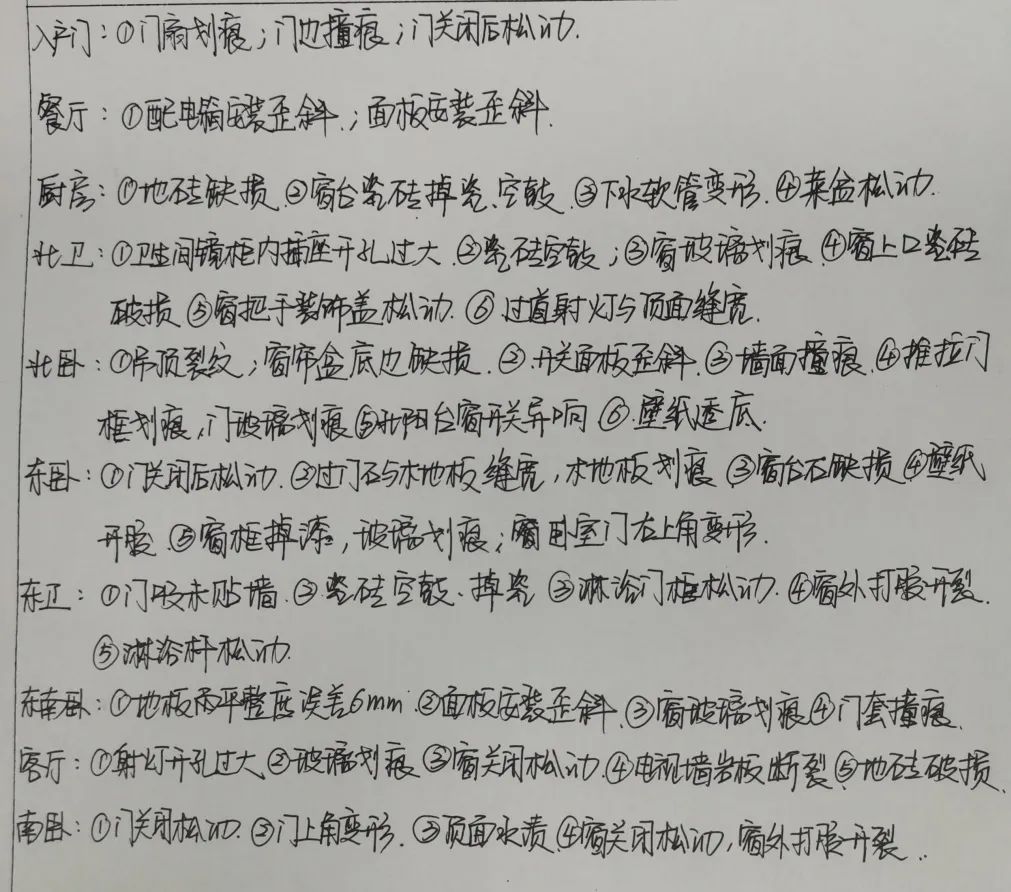 入户门：①门扇划痕；门边撞痕；门关闭后松动.
餐厅：①配电箱安装歪斜.；面板安装歪斜.
厨房：①地砖缺损.②窗台瓷砖掉瓷、空鼓.③下水软管变形.④菜盆松动.
北卫：①卫生间镜柜内插座开孔过大.②瓷砖空鼓；③窗玻璃划痕.④窗上口瓷砖
破损 ⑤窗把手装饰盖松动.⑥过道射灯与顶面缝宽.
北卧：①吊顶裂纹；窗帘盒底边缺损.②开关面板歪斜.③墙面撞痕.④推拉门
框划痕、门玻璃划痕⑤北阳台窗开关异响 ⑥壁纸透底.
东卧：①门关闭后松动.②过门石与木地板缝宽，木地板划痕.③窗台石缺损④壁纸
开胶 ⑤窗框掉漆，玻璃划痕；卧室门右上角变形.
东卫：①门吸未贴墙.②瓷砖空鼓、掉瓷 ③淋浴门框松动.④窗外打胶开裂.
⑤淋浴杆松动.
东南卧：①地板平整度误差6mm.②面板安装歪斜.③窗玻璃划痕④门套撞痕.
客厅：①射灯开孔过大②玻璃划痕 ③窗关闭松动.④电视墙岩板断裂.⑤地砖破损.
南卧：①门关闭松动.②门上角变形.③顶面水渍.④窗关闭松动，窗外打胶开裂..